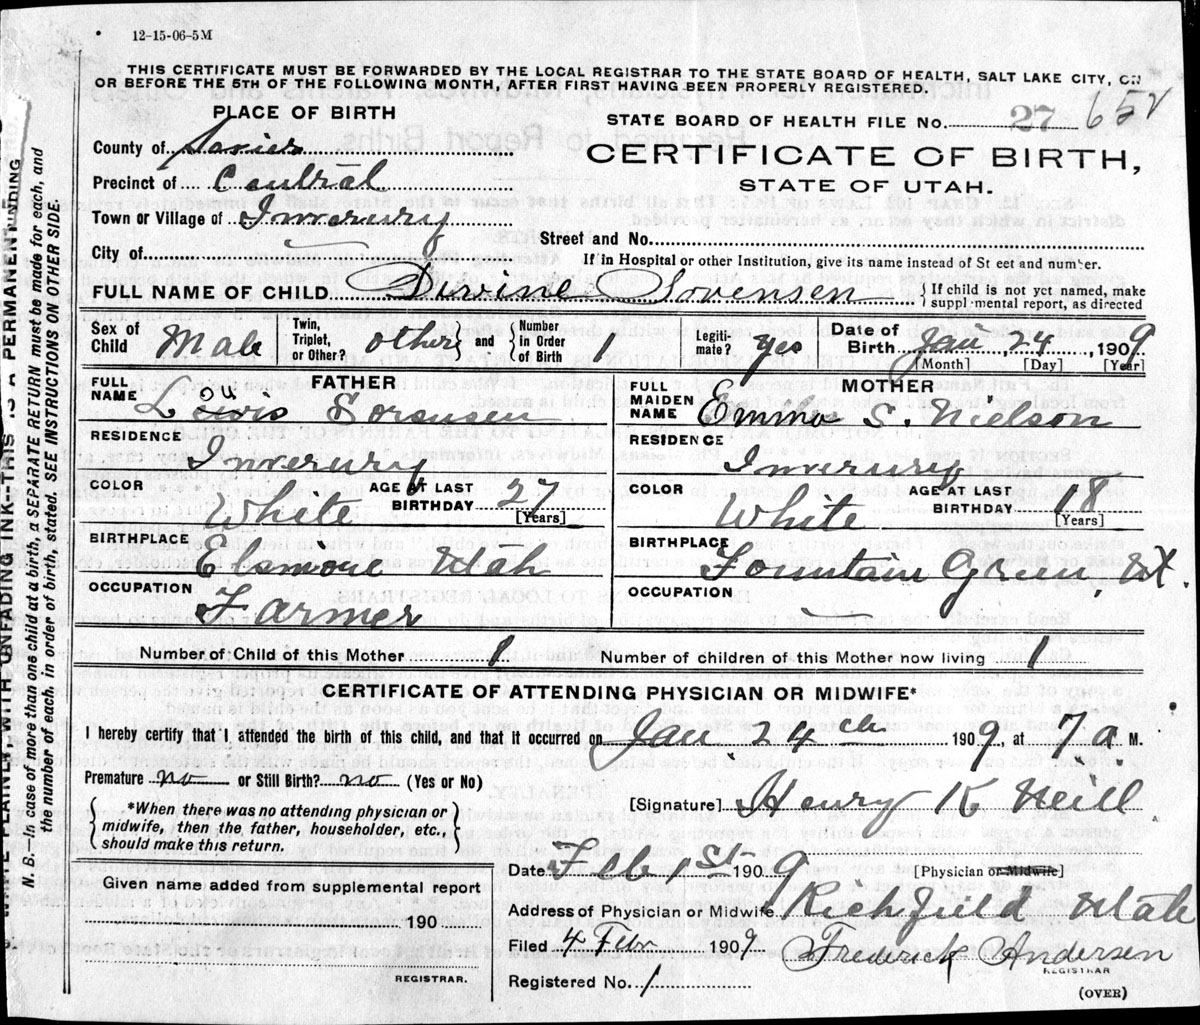 12-15-06-5M
THIS CERTIFICATE MUST BE FORWARDED BY THE LOCAL REGISTRAR TO THE STATE BOARD OF HEALTH, SALT LAKE CITY, ON
OR BEFORE THE 5TH OF THE FOLLOWING MONTH, AFTER FIRST HAVING BEEN PROPERLY REGISTERED.
PLACE OF BIRTH
STATE BOARD OF HEALTH FILE NO. 27 65
County of Sevier
CERTIFICATE OF BIRTH,
STATE OF UTAH.
Precinct of Central
Town or Village of Inverury
Street and No.
City of
If in Hospital or other Institution, give its name instead of St eet and number.
FULL NAME OF CHILD Sorensen { If child is not yet named, make
suppl mental report, as directed
Sex of Child Male Twin, Triplet, or Other? other and { Number in Order of Birth 1 Legiti-mate? yes Date of Birth Jan 24, 1909
[Month] [Day] [Year]
FATHER
FULL NAME Louis Sorensen
RESIDENCE Inverury
COLOR White AGE AT LAST BIRTHDAY 27 [Years]
BIRTHPLACE Elsinore Utah
OCCUPATION Farmer
MOTHER
FULL MAIDEN NAME Emma S. Nielson
RESIDENCE Inverury
COLOR White AGE AT LAST BIRTHDAY 18 [Years]
BIRTHPLACE Fountain Green, Ut.
OCCUPATION
Number of Child of this Mother 1 Number of children of this Mother now living 1
CERTIFICATE OF ATTENDING PHYSICIAN OR MIDWIFE*
I hereby certify that I attended the birth of this child, and that it occurred on Jan. 24th 1909, at 7 a. M.
Premature no or Still Birth? no (Yes or No)
{ *When there was no attending physician or
midwife, then the father, householder, etc.,
should make this return. }
[Signature] Henry K Neill
Date Feb 1st 1909 [Physician or Midwife]
Given name added from supplemental report
190
REGISTRAR.
Address of Physician or Midwife Richfield Utah
Filed 4 Febr 1909. Frederick Andersen
REGISTRAR
Registered No. 1
(OVER)
WRITE PLAINLY, WITH UNFADING INK--THIS IS A PERMANENT
N. B. In case of more than one child at a birth, a SEPARATE RETURN must be made for each, and
the number of each, in order of birth, stated. SEE INSTRUCTIONS ON OTHER SIDE.